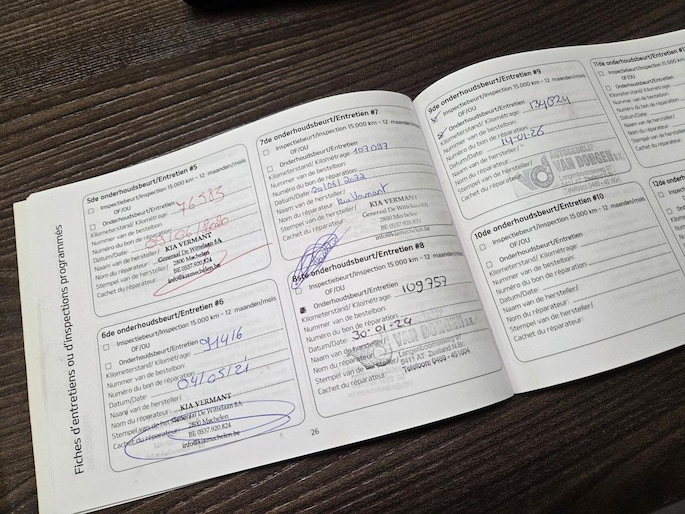 Fiches d'entretiens ou d'inspections programmés
5de onderhoudsbeurt/Entretien #5
Inspectiebeurt/Inspection 15.000 km - 12 maanden/mois
OF/OU
Onderhoudsbeurt/Entretien
Kilometerstand/ Kilométrage: 76583
Nummer van de bestelbon:
Numéro du bon de réparation:
Datum/Date: 09/06/2020
Naam van de hersteller/
Nom du réparateur:
Stempel van de hersteller/
Cachet du réparateur:
KIA VERMANT
Generaal De Wittelaan 8A
2800 Mechelen
BE 0537.920.824
info@kiamechelen.be
6de onderhoudsbeurt/Entretien #6
Inspectiebeurt/Inspection 15.000 km - 12 maanden/mois
OF/OU
Onderhoudsbeurt/Entretien
Kilometerstand/ Kilométrage: 91416
Nummer van de bestelbon:
Numéro du bon de réparation:
Datum/Date: 04/05/21
Naam van de hersteller/
Nom du réparateur:
Stempel van de
Cachet du réparateur:
KIA VERMANT
Generaal De Wittelaan 8A
2800 Mechelen
BE 0537.920.824
info@kiamechelen.be
7de onderhoudsbeurt/Entretien #7
Inspectiebeurt/Inspection 15.000 km - 12 maanden/mois
OF/OU
Onderhoudsbeurt/Entretien
Kilometerstand/ Kilométrage: 107097
Nummer van de bestelbon:
Numéro du bon de réparation:
Datum/Date: 20/06/2022
Naam van de hersteller/
Nom du réparateur: Kia Vermant
Stempel van de hersteller/
Cachet du réparateur:
KIA VERMANT
Generaal De Wittelaan 8A
2800 Mechelen
BE 0537.920.821
info@kiamechelen.be
8ste onderhoudsbeurt/Entretien #8
Inspectiebeurt/Inspection 15.000 km - 12 maanden/mois
OF/OU
Onderhoudsbeurt/Entretien
Kilometerstand/ Kilométrage: 109757
Nummer van de bestelbon:
Numéro du bon de réparation:
Datum/Date: 30-01-24
Naam van de hersteller/
Nom du réparateur:
Stempel van de hersteller/
Cachet du réparateur:
VAN DORGEN
Telefoon: 0495 - 451004
26
9de onderhoudsbeurt/Entretien #9
Inspectiebeurt/Inspection 15.000 km - 12 maanden/mois
OF/OU
Onderhoudsbeurt/Entretien
Kilometerstand/ Kilométrage: 134024
Nummer van de bestelbon:
Numéro du bon de réparation:
Datum/Date: 14-01-26
Naam van de hersteller/
Nom du réparateur:
Stempel van de hersteller/
Cachet du réparateur:
VAN DORGEN
10de onderhoudsbeurt/Entretien #10
Inspectiebeurt/Inspection 15.000 km - 12 maanden/mois
OF/OU
Onderhoudsbeurt/Entretien
Kilometerstand/ Kilométrage:
Nummer van de bestelbon:
Numéro du bon de réparation:
Datum/Date:
Naam van de hersteller/
Nom du réparateur:
Stempel van de hersteller/
Cachet du réparateur:
11de onderhoudsbeurt/Entretien
Inspectiebeurt/Inspection 15.000
OF/OU
Onderhoudsbeurt/Entretien
Kilometerstand/ Kilométrage:
Nummer van de bestelbon:
Numéro du bon de réparation
Datum/Date:
Naam van de hersteller/
Nom du réparateur:
Stempel van de
Cachet du
12de